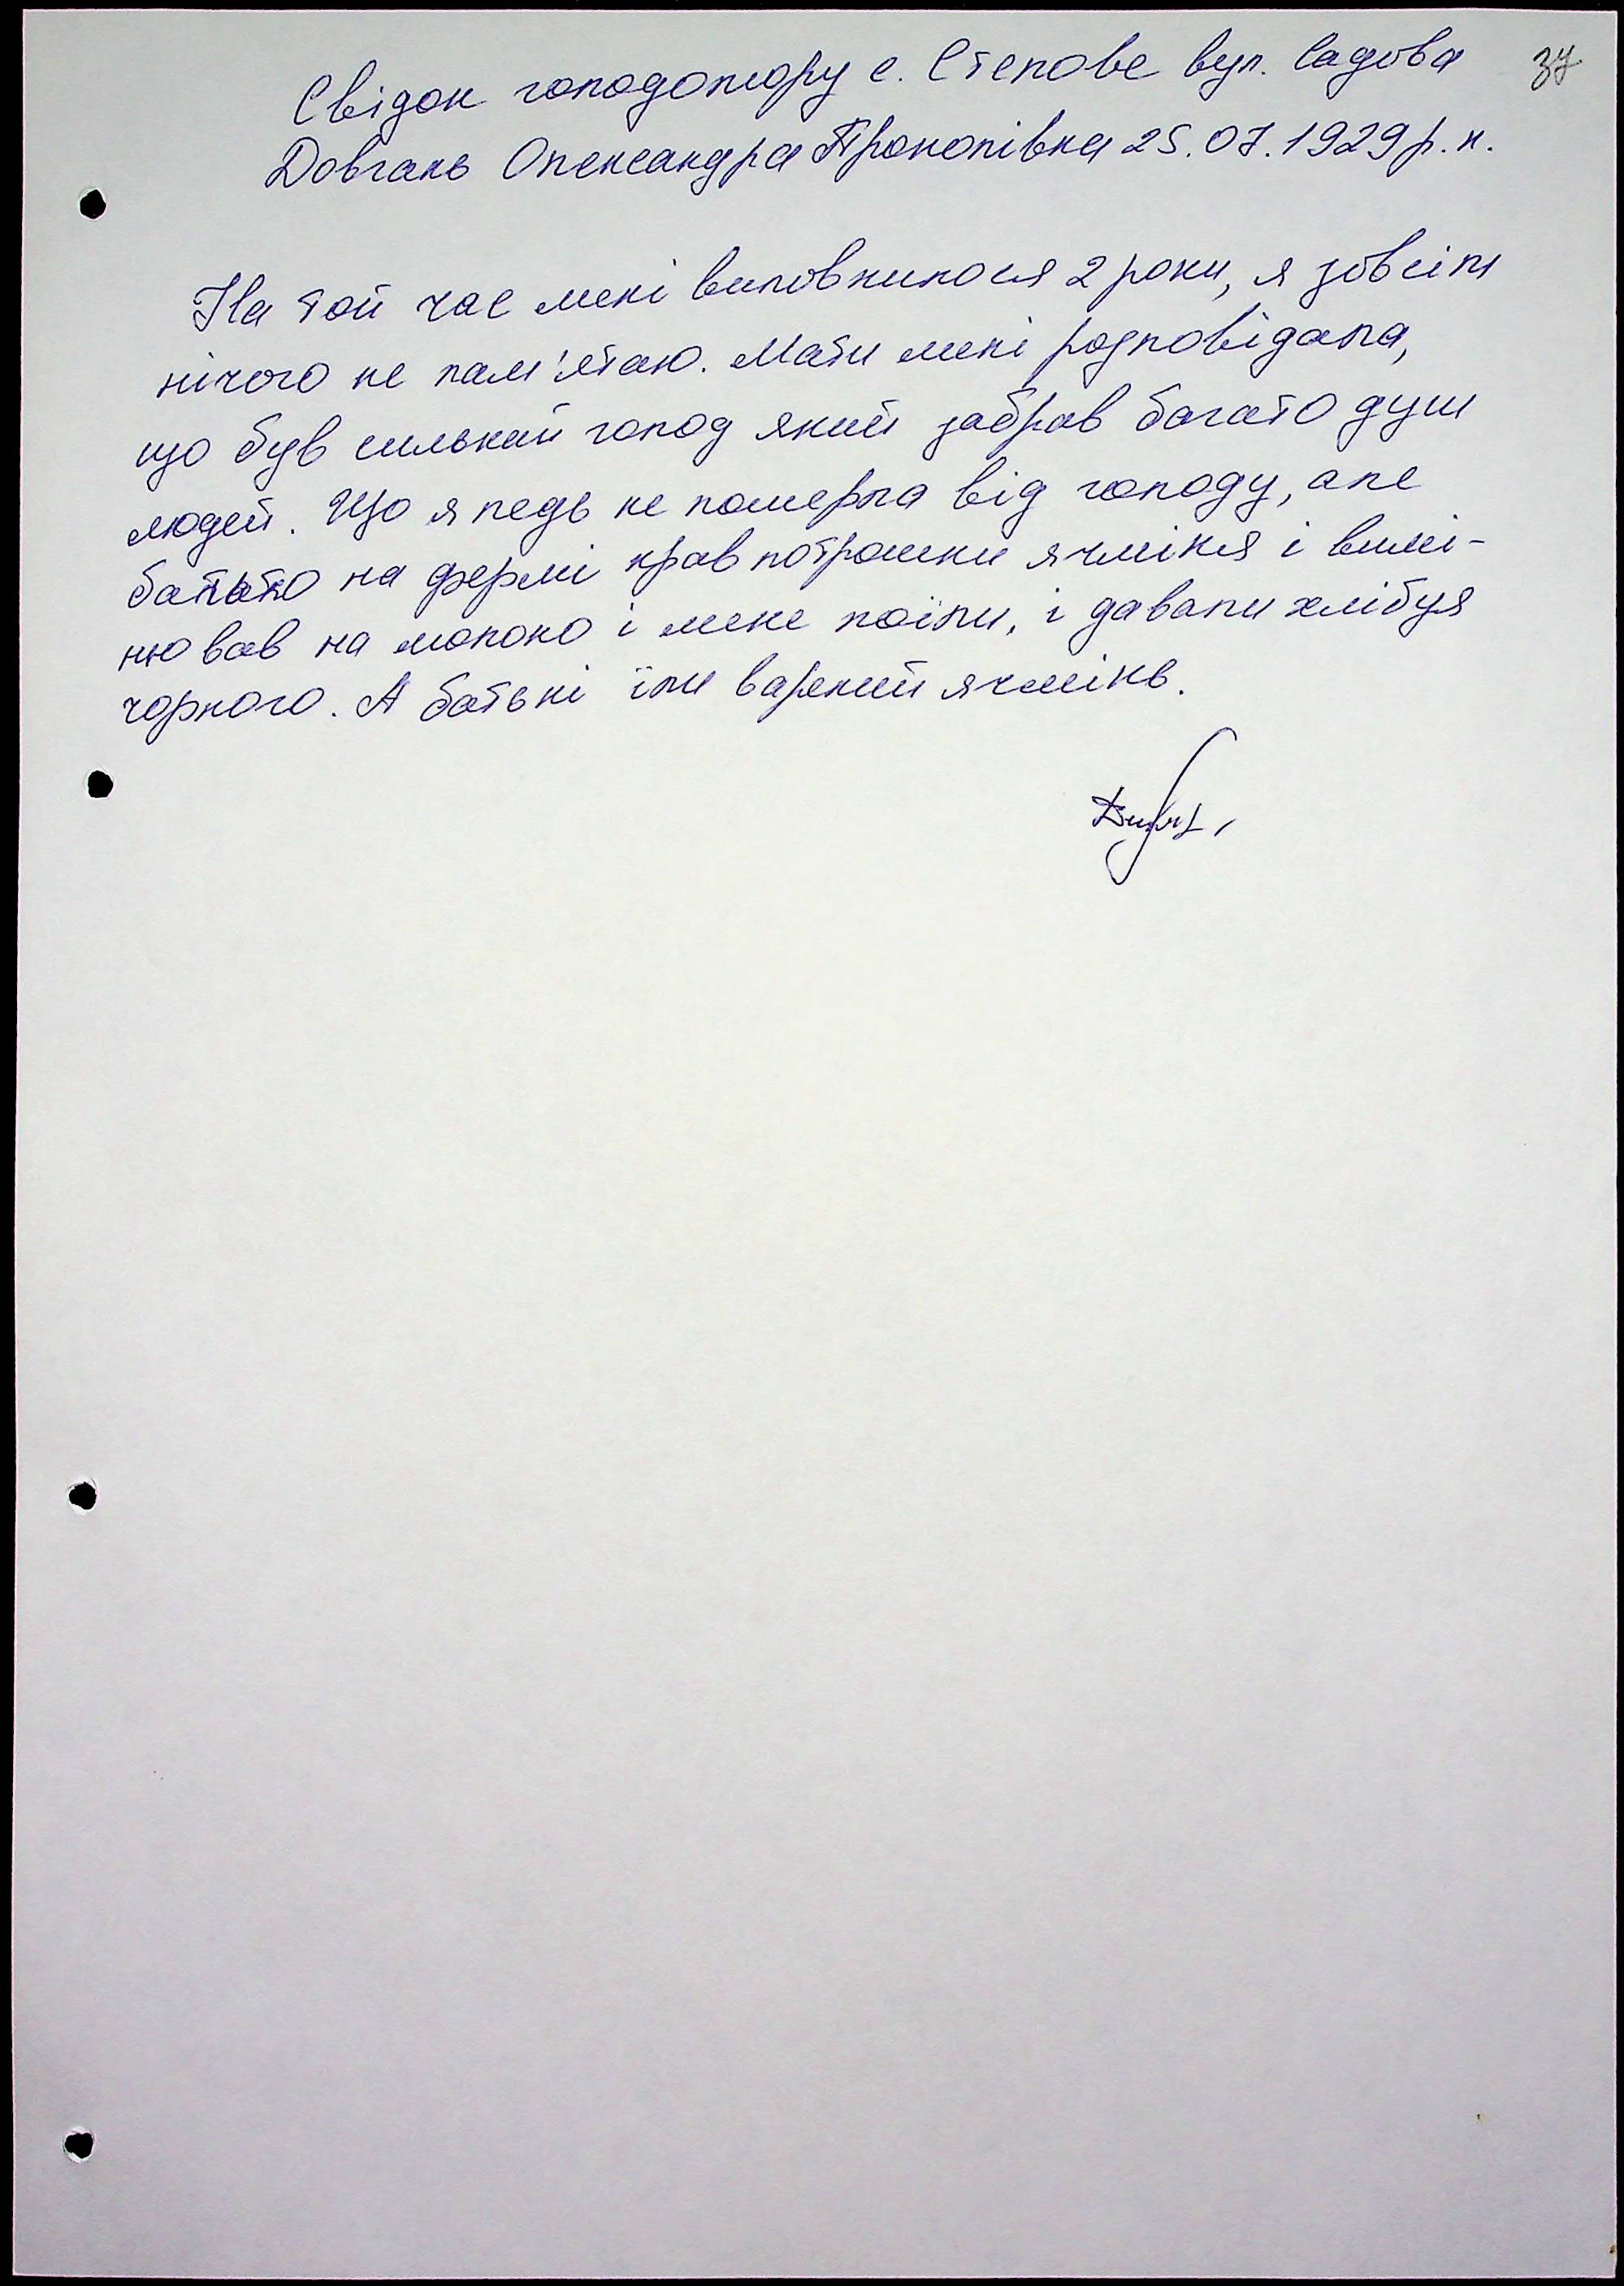 37
Свідок голодомору с. Степове вул. Садова
Довгань Олександра Прокопівна 25.07.1929 р.н.
На той час мені виповнилося 2 роки, я зовсім
нічого не пам'ятаю. Мати мені розповідала,
що був сильний голод який забрав багато душ
людей. Що я ледь не померла від голоду, але
батько на фермі крав потрошки ячміня і вимі-
нював на молоко і мене поїли, і давали хлібця
чорного. А батьки їли варений ячмінь.